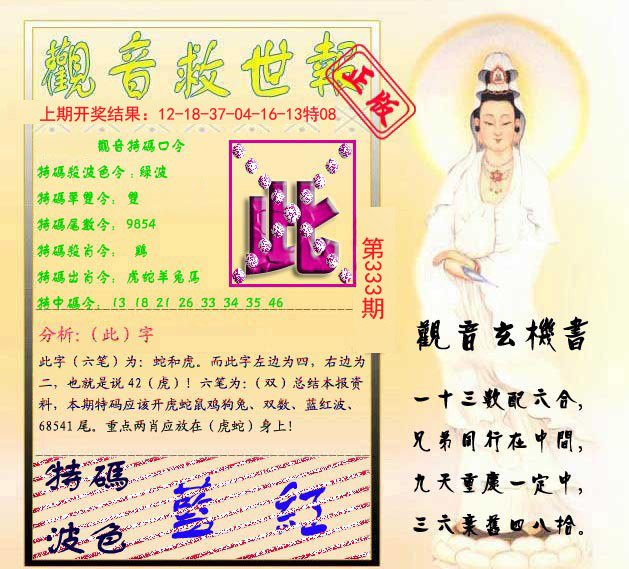 觀音救世報
正版
上期开奖结果：12-18-37-04-16-13特08
觀音特碼口令
特碼殺波色令：綠波
特碼單雙令：雙
特碼尾數令：9854
特碼殺肖令：鷄
特碼出肖令：虎蛇羊兔馬
特中碼令：13 18 21 26 33 34 35 46
此
第333期
分析：（此）字
此字（六笔）为：蛇和虎。而此字左边为四，右边为
二，也就是说42（虎）！六笔为：（双）总结本报资
料，本期特码应该开虎蛇鼠鸡狗兔、双数、蓝红波、
68541尾。重点两肖应放在（虎蛇）身上！
特碼
波色
藍 紅
觀音玄機書
一十三数配六合，
兄弟同行在中間，
九天重慶一定中，
三六棄舊四八拾。